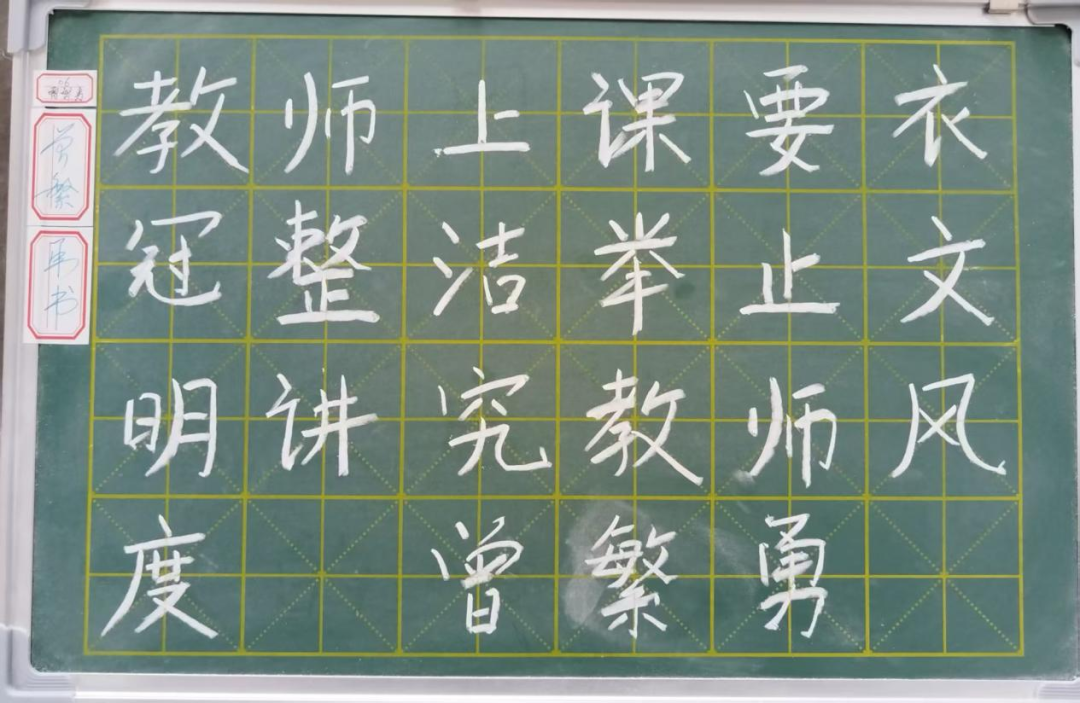 教师上课要衣
冠整洁举止文
明讲究教师风
度 曾繁勇
曾繁
勇书